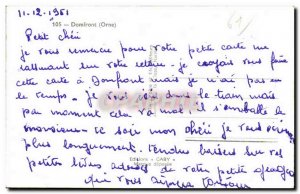 11-12-1951
105 - Domfront (Orne)
61
Petit chéri
je vous remercie pour votre petite carte me
rassurant sur votre retour - je croyais vous faire
cette carte à Domfront mais je n'ai pas eu
le temps - je vous écris dans le train mais
par moment cela va mal il s'emballe le
monsieur - ce soir mon chéri je vous
plus longuement. tendres baisers sur vos
petites lèvres de votre petite
qui vous
Editions "CABY"